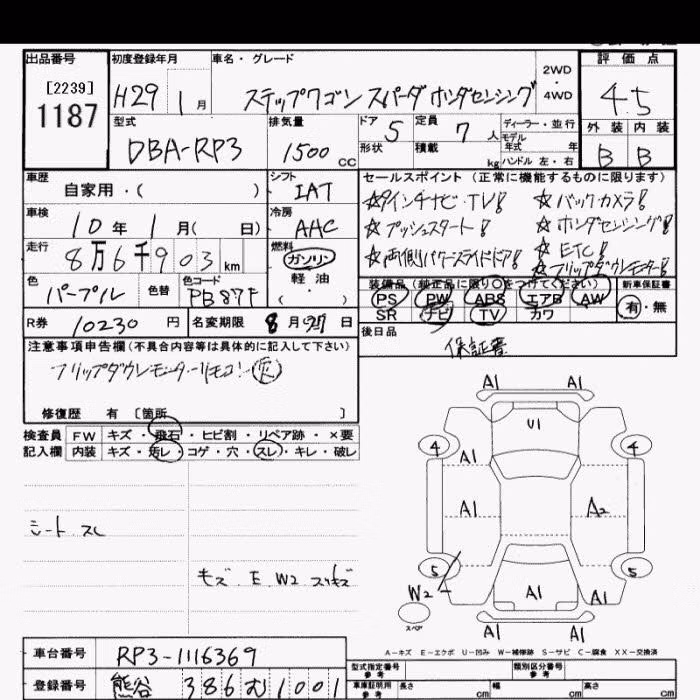 出品番号 初度登録年月 車名・グレード 2WD・4WD 評価点
[2239]
1187 H29 1月 ステップワゴン スパーダ ホンダセンシング 4.5
型式 排気量 ドア 定員 ディーラー・並行 外装 内装
DBA-RP3 1500cc 5 7人 モデル年式 年式 B B
形状 積載 kg ハンドル 左・右
車歴 シフト セールスポイント(正常に機能するものに限ります)
自家用・( ) IAT ☆9インチナビ・TV! ☆バックカメラ!
車検 冷房 ☆プッシュスタート! ☆ホンダセンシング!
10年1月( 日) AAC ☆両側パワースライドドア! ☆ETC!
走行 燃料 ☆フリップダウンモニター!
8万6千903km ガソリン 軽油 ( )
色 色替 色コード 装備品(純正品に限り○をつけてください) 新車保証書
パープル PB87P PS PW ABS エアB AW 有・無
SR ナビ TV カワ
R券 10230円 名変期限 8月 日 後日品
保証書
注意事項申告欄(不具合内容等は具体的に記入して下さい)
フリップダウンモニターリモコン
修復歴 有 〔箇所 〕
検査員 FW キズ・飛石・ヒビ割・リペア跡・×要
記入欄 内装 キズ・汚レ・コゲ・穴・スレ・キレ・破レ
シート スレ
キズ E W2 スリキズ
A1 A1
U1
4 4
A1
A1 A2
5 5
W2 A1 A1
スペア A1 A1
A-キズ E-エクボ U-凹み W-補修跡 S-サビ C-腐食 XX-交換済
車台番号 RP3-1116369 型式指定番号 参考 類別区分番号 参考
登録番号 熊谷 386 む 1001 車庫証明用 参考 長さ cm 幅 cm 高さ cm